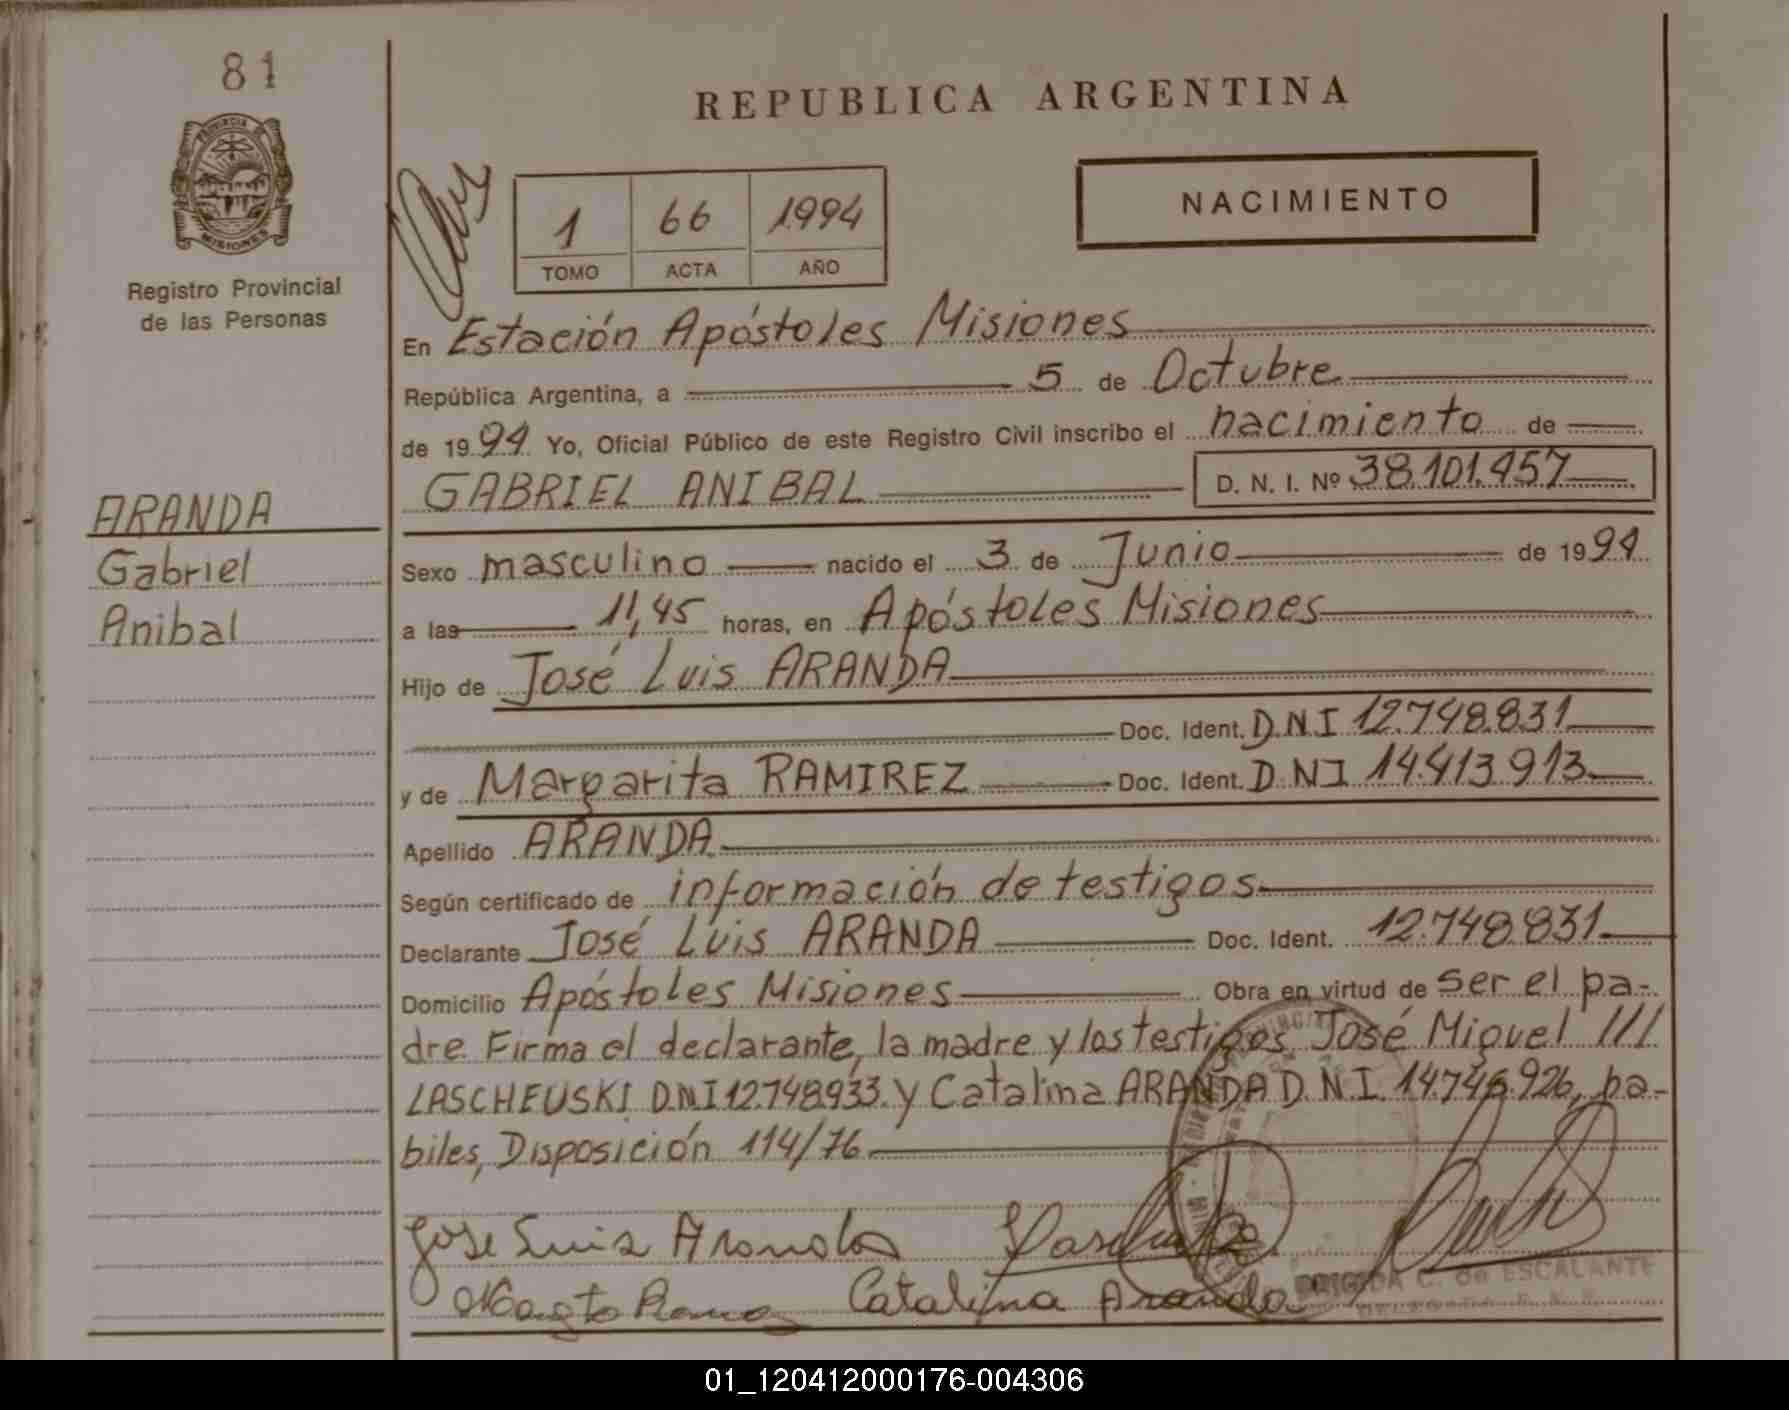 81
REPUBLICA ARGENTINA
PROVINCIA DE
MISIONES
Registro Provincial
de las Personas
1 66 1994
TOMO ACTA AÑO
NACIMIENTO
En Estación Apóstoles Misiones
República Argentina, a 5 de Octubre
de 1994 Yo, Oficial Público de este Registro Civil inscribo el nacimiento de
GABRIEL ANIBAL D. N. I. Nº 38.101.457
ARANDA
Gabriel
Anibal
Sexo masculino nacido el 3 de Junio de 1994
a las 11,45 horas, en Apóstoles Misiones
Hijo de José Luis ARANDA
Doc. Ident. D.N.I 12.748.831
y de Margarita RAMIREZ Doc. Ident. D.NI 14.413.913
Apellido ARANDA
Según certificado de información de testigos
Declarante José Luis ARANDA Doc. Ident. 12.748.831
Domicilio Apóstoles Misiones Obra en virtud de ser el pa-
dre. Firma el declarante, la madre y los testigos José Miguel ///
LASCHEUSKI D.N.I 12.748.933. y Catalina ARANDA D.N.I. 14.746.926, ha-
biles, Disposición 114/76
Jose Luis Aranda
Catalina Aranda
BRIGIDA C. de ESCALANTE
01_120412000176-004306